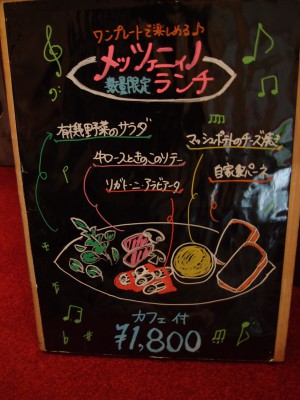 ワンプレートで楽しめる♪
メッツェニィノ
数量限定 ランチ
有機野菜のサラダ
マッシュポテトのチーズ焼き
牛ロースときのこソテー
自家製パーネ
リガトーニ・アラビアータ
カフェ付
¥1,800